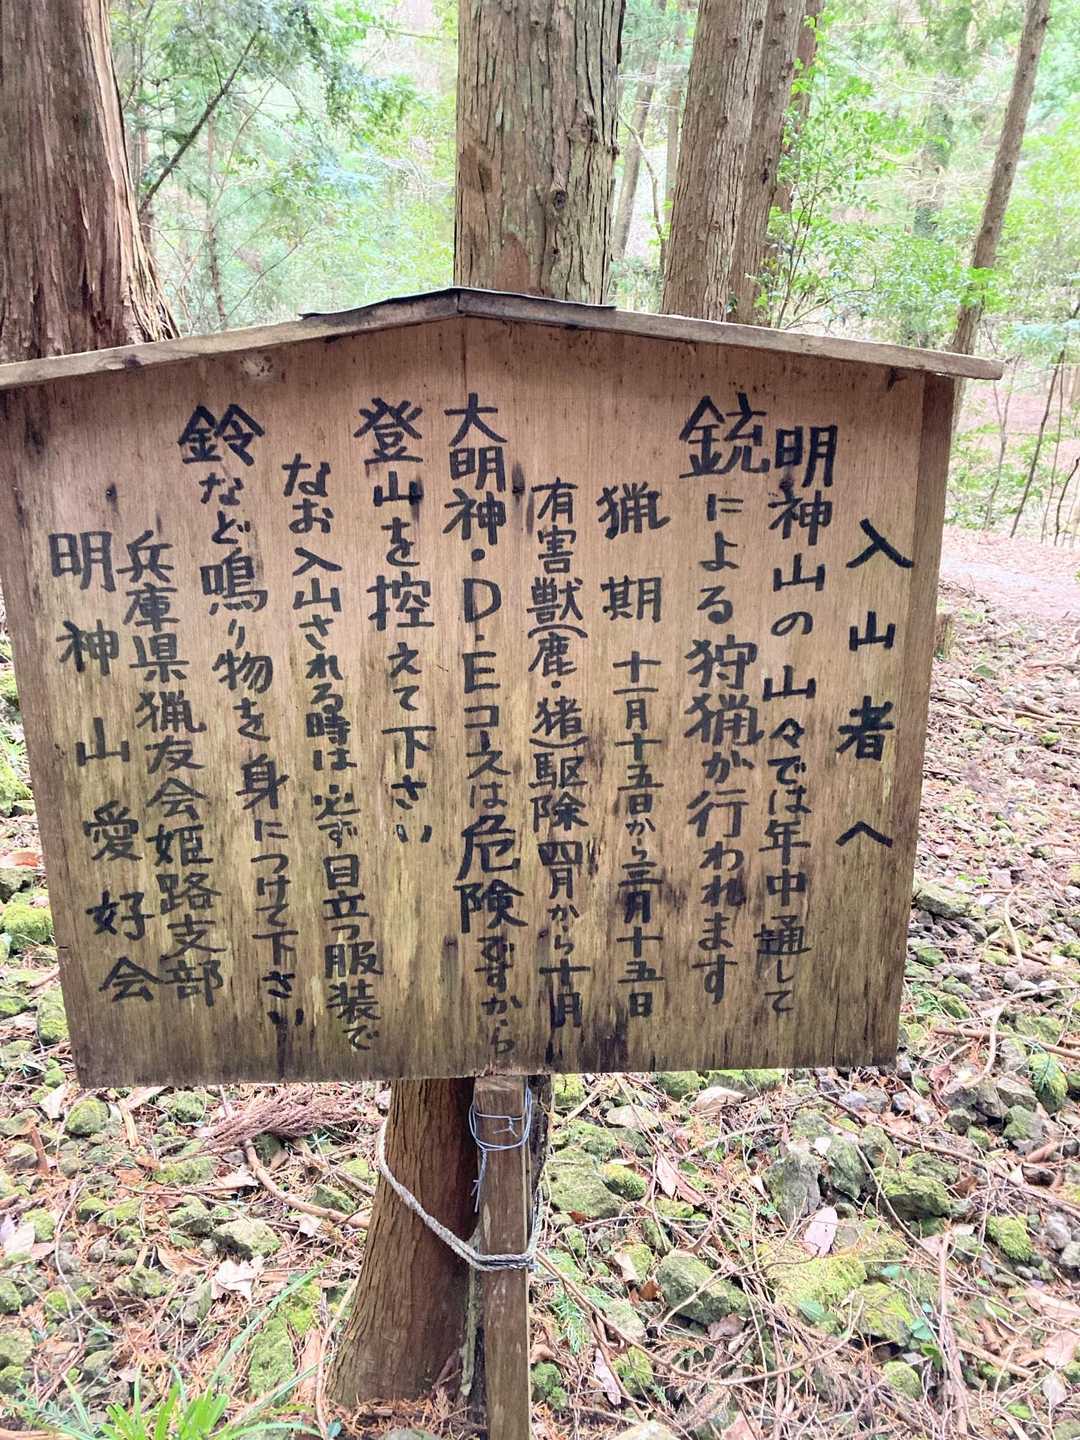 入山者へ
明神山の山々では年中通して
銃による狩猟が行われます
猟期 十一月十五日から三月十五日
有害獣(鹿・猪)駆除四月から十月
大明神・D・Eコースは危険ですから
登山を控えて下さい
なお入山される時は必ず目立つ服装で
鈴など鳴り物を身につけて下さい
兵庫県猟友会姫路支部
明神山愛好会